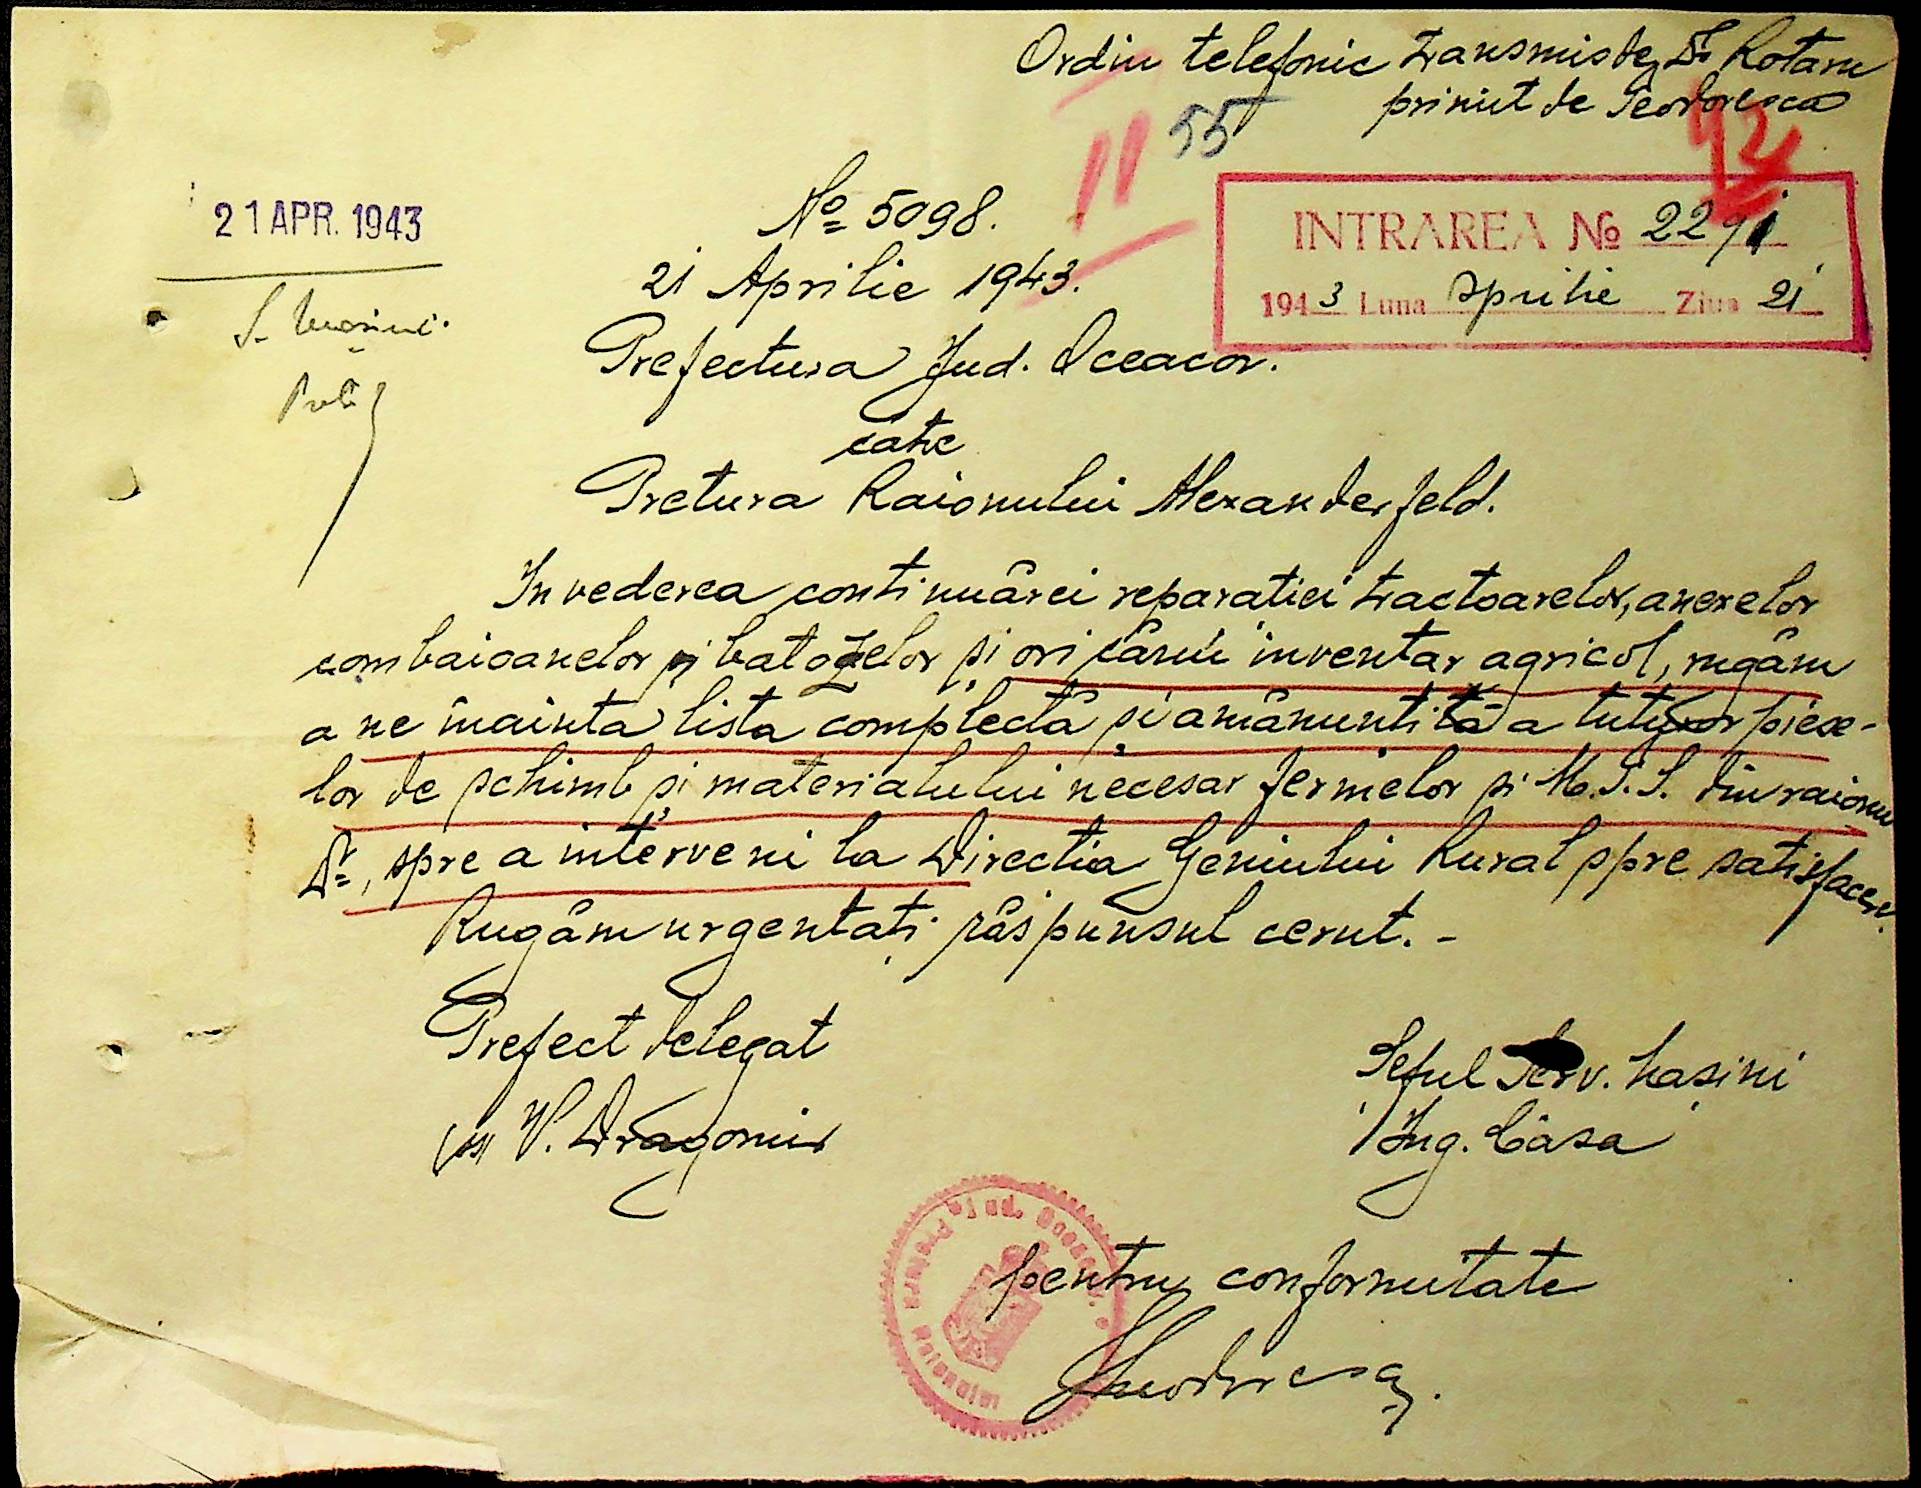 Ordin telefonic transmis de Dl Rotaru
primit de Teodorescu
55
II
92
21 APR. 1943
No 5098.
21 Aprilie 1943.
INTRAREA No 2291
1943 Luna Aprilie Ziua 21
Prefectura Jud. Oceacov.
catre
Pretura Raionului Alexanderfeld.
In vederea continuărei reparatiei tractoarelor, anexelor
combaioanelor și batozelor și oricărui inventar agricol, rugăm
a ne înainta lista complectă și amănunțită a tuturor piese-
lor de schimb și materialului necesar fermelor și M.T.S. din raionu
Dv, spre a interveni la Directia Geniului Rural spre satisfacere.
Rugăm urgentați răspunsul cerut. -
Prefect delegat
(ss) V. Dragomir
Șeful Serv. Mașini
Ing. Căsa
pentru conformitate